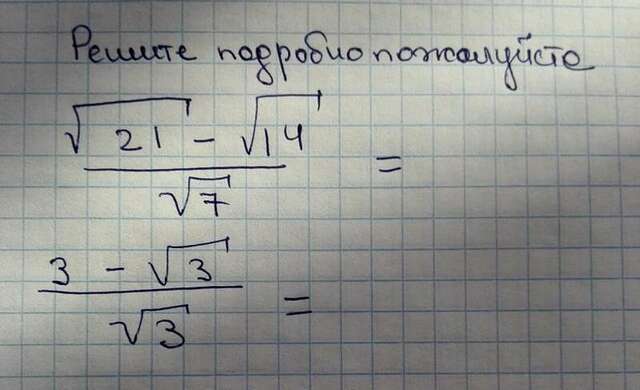 Решите подробно пожалуйста
√21 - √14
√7
=
3 - √3
√3
=